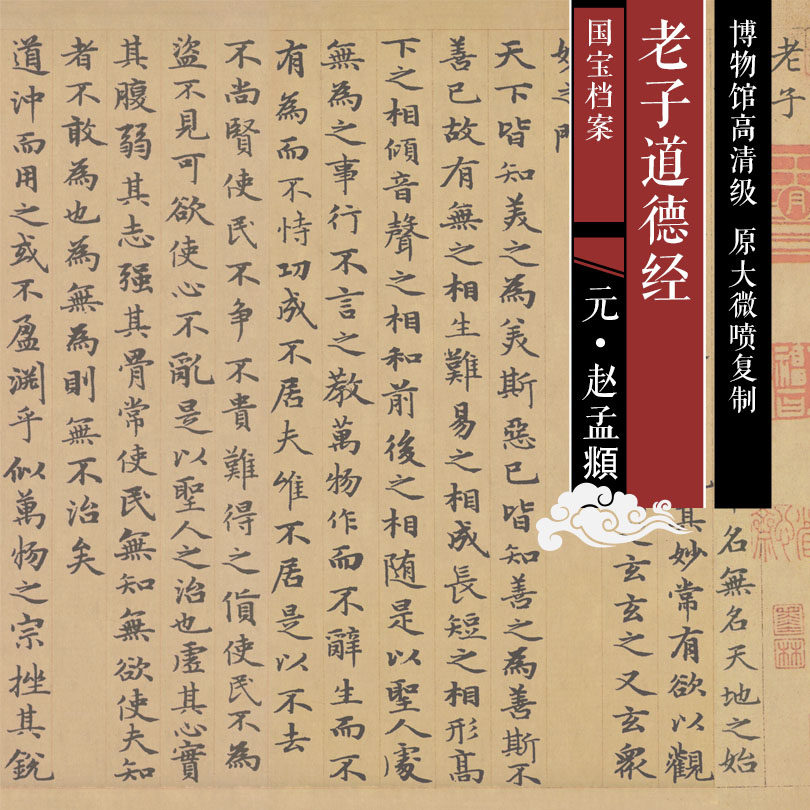 老子
博物馆高清级 原大微喷复制
老子道德经
国宝档案
元·赵孟頫
名無名天地之始
其妙常有欲以觀
玄玄之又玄衆
妙之門
天下皆知美之為美斯惡已皆知善之為善斯不
善已故有無之相生難易之相成長短之相形高
下之相傾音聲之相和前後之相随是以聖人處
無為之事行不言之教萬物作而不辭生而不
有為而不恃功成不居夫唯不居是以不去
不尚賢使民不争不貴難得之貨使民不為
盗不見可欲使心不亂是以聖人之治也虚其心實
其腹弱其志强其骨常使民無知無欲使夫知
者不敢為也為無為則無不治矣
道沖而用之或不盈渊乎似萬物之宗挫其銳